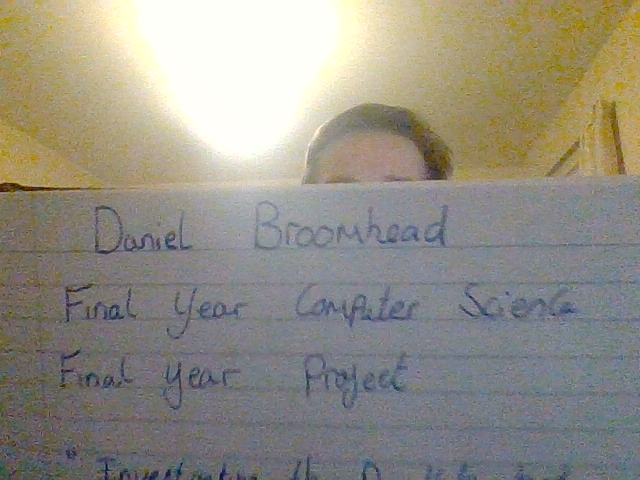 Daniel Broomhead
Final Year Computer Science
Final Year Project
" Investigating the